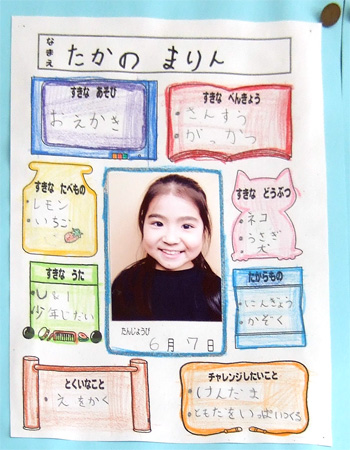 なまえ たかの まりん
すきな あそび
おえかき
すきな べんきょう
・さんすう
・がっかつ
すきな たべもの
・レモン
・いちご
すきな どうぶつ
・ネコ
・うさぎ
・犬
すきな うた
少年じだい
たからもの
・にんぎょう
・かぞく
たんじょうび
6月7日
とくいなこと
・えをかく
チャレンジしたいこと
・けんだま
・ともだちをいっぱいつくる